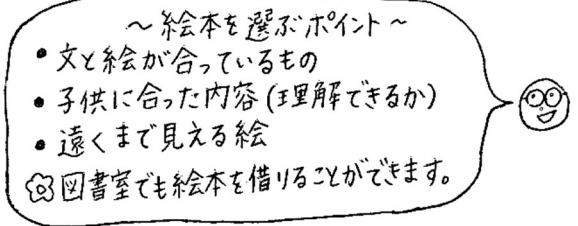 ～絵本を選ぶポイント～
• 文と絵が合っているもの
• 子供に合った内容(理解できるか)
• 遠くまで見える絵
✿図書室でも絵本を借りることができます。